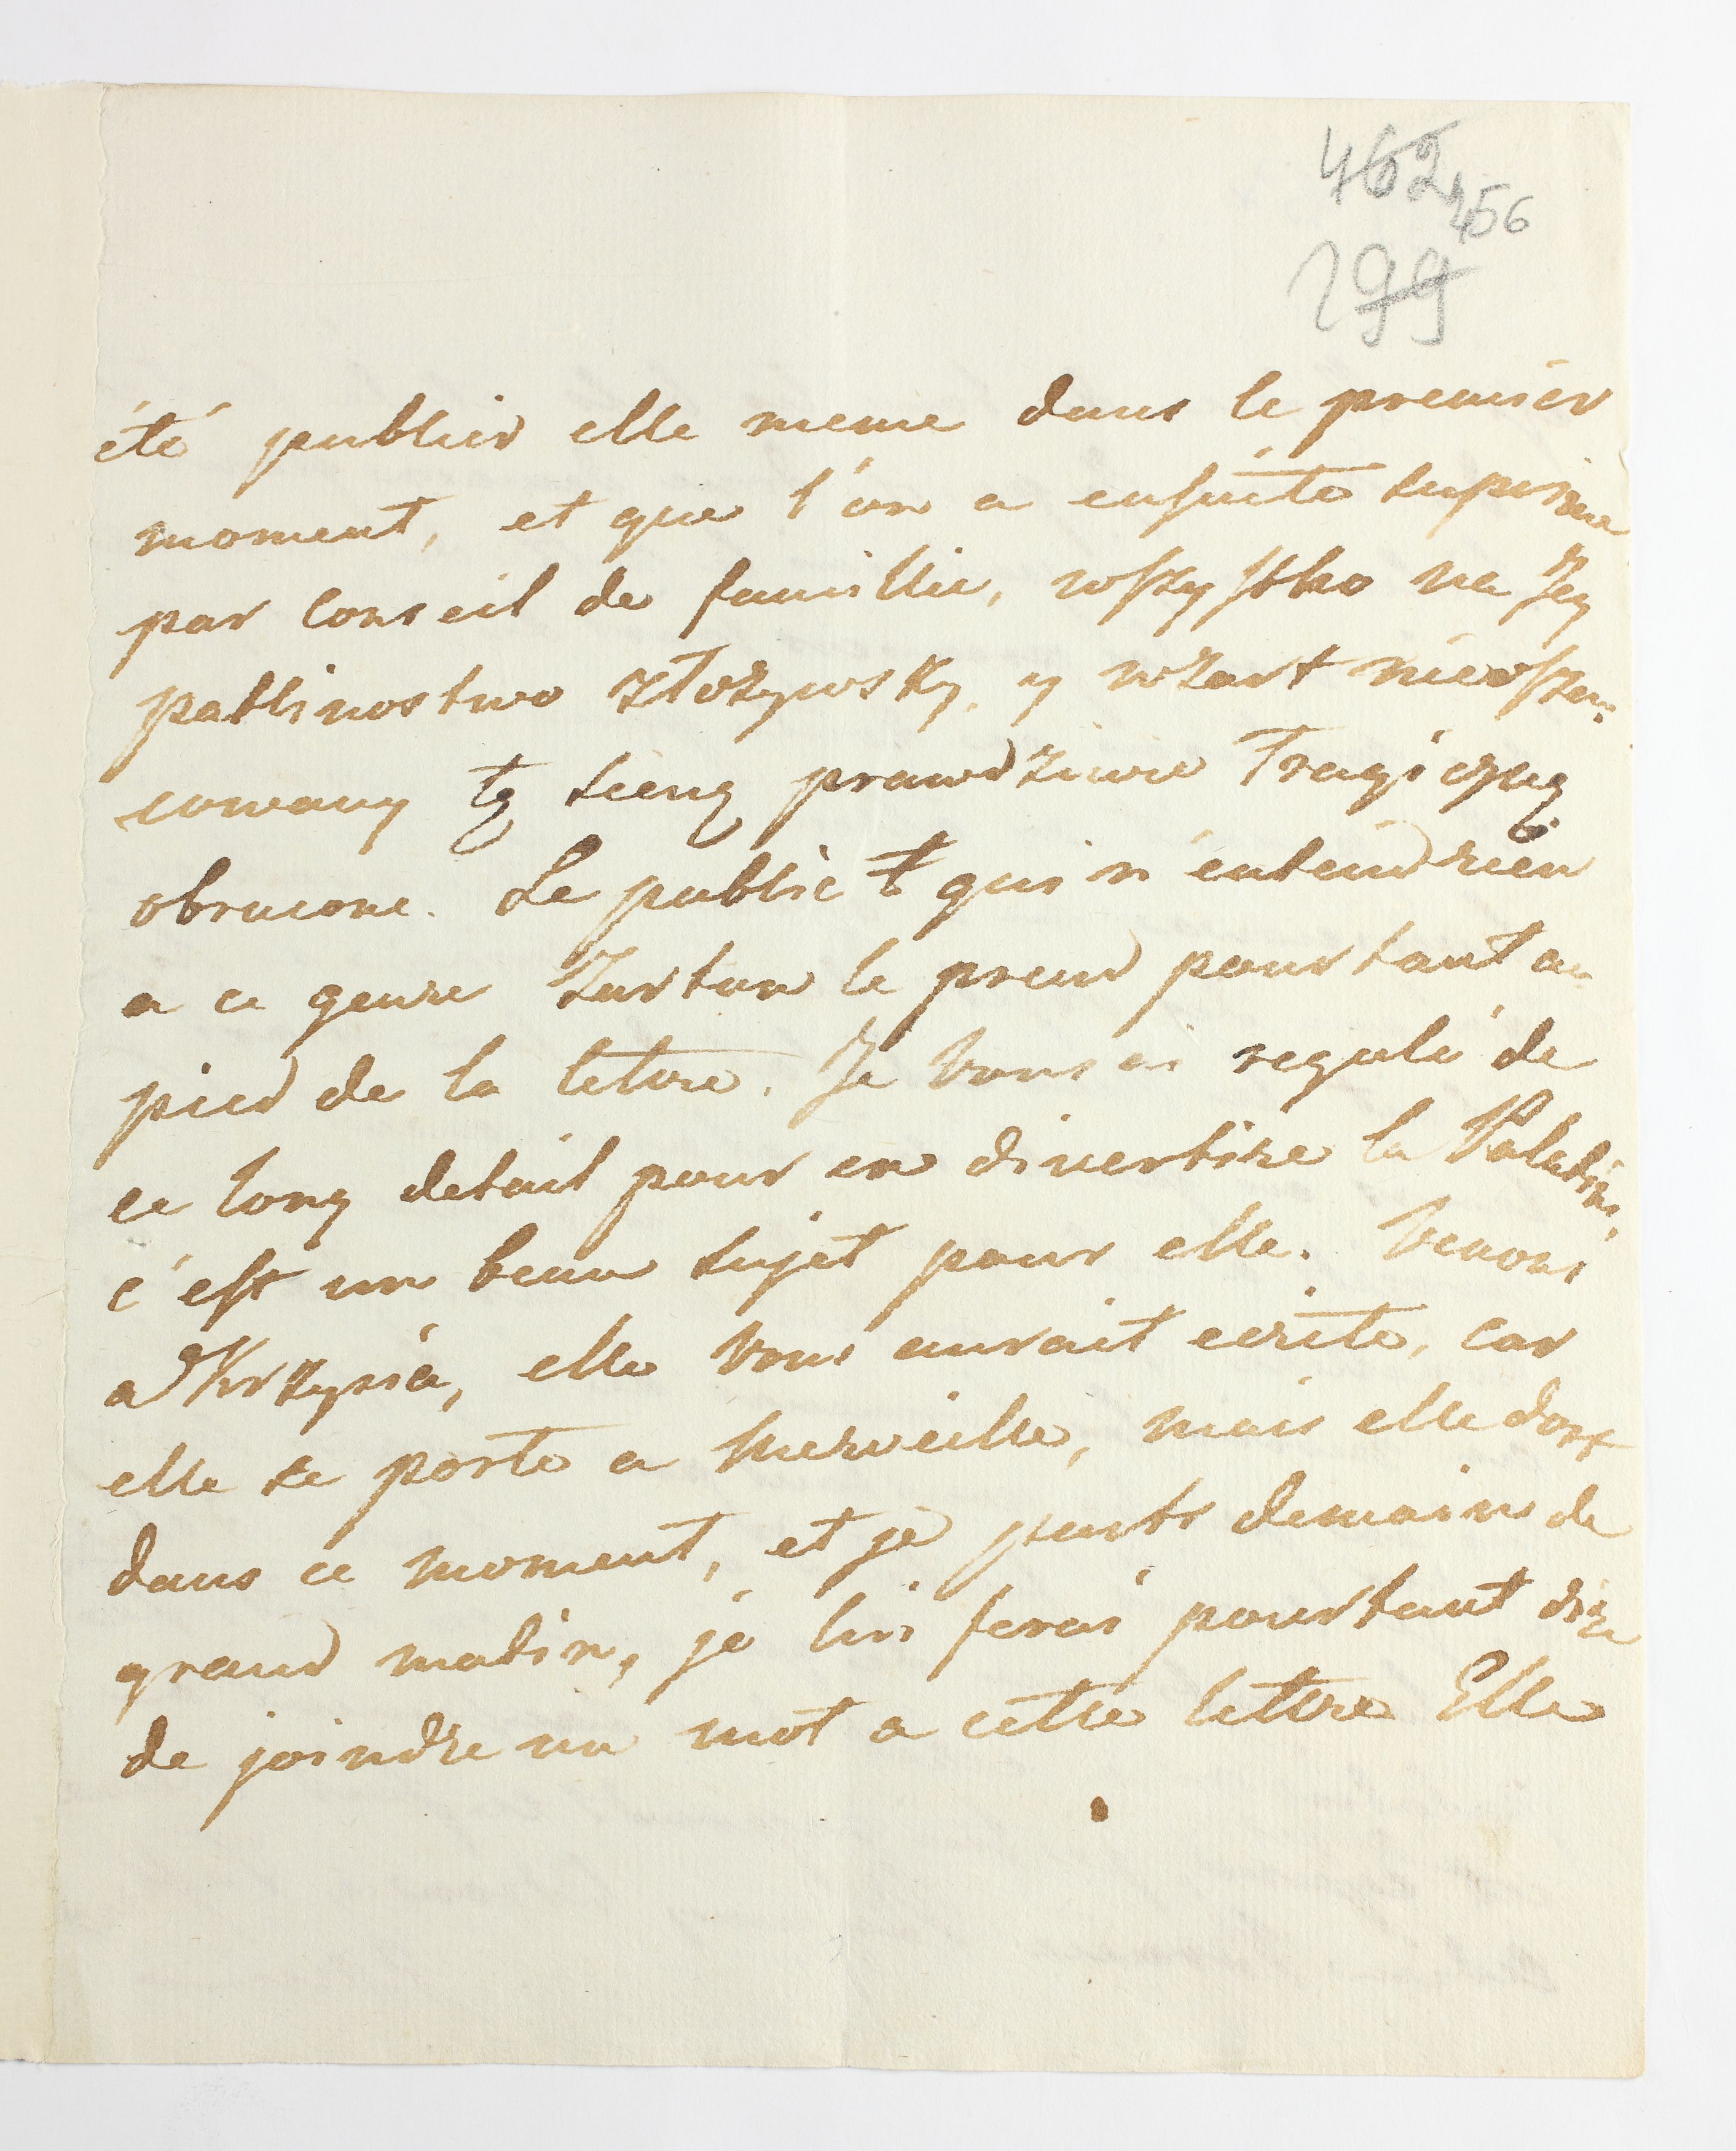 462
456
199
été publier elle meme dans le premier
moment, et que l'on a ensuite suprimé
par Conseil de famillie, wszystko na Jey
patliwostwo złożywsky, y wżart nieoszan
cowany tę scenę prawdziwie Tragiczną
obrucone. Le public t qui n'entend rien
a ce genre Zartun le prend pourtant au
pied de la lettre. Je vous ai regalé de
ce long detail pour en divertire la Paladine,
c'est un beau sujet pour elle. Venons
a Krzysia, elle vous aurait ecrite, car
elle se porte a merveille, mais elle dort
dans ce moment, et je parts demain de
grand matin, je lui ferai pourtant dire
de joindre un mot a cette lettre Elle